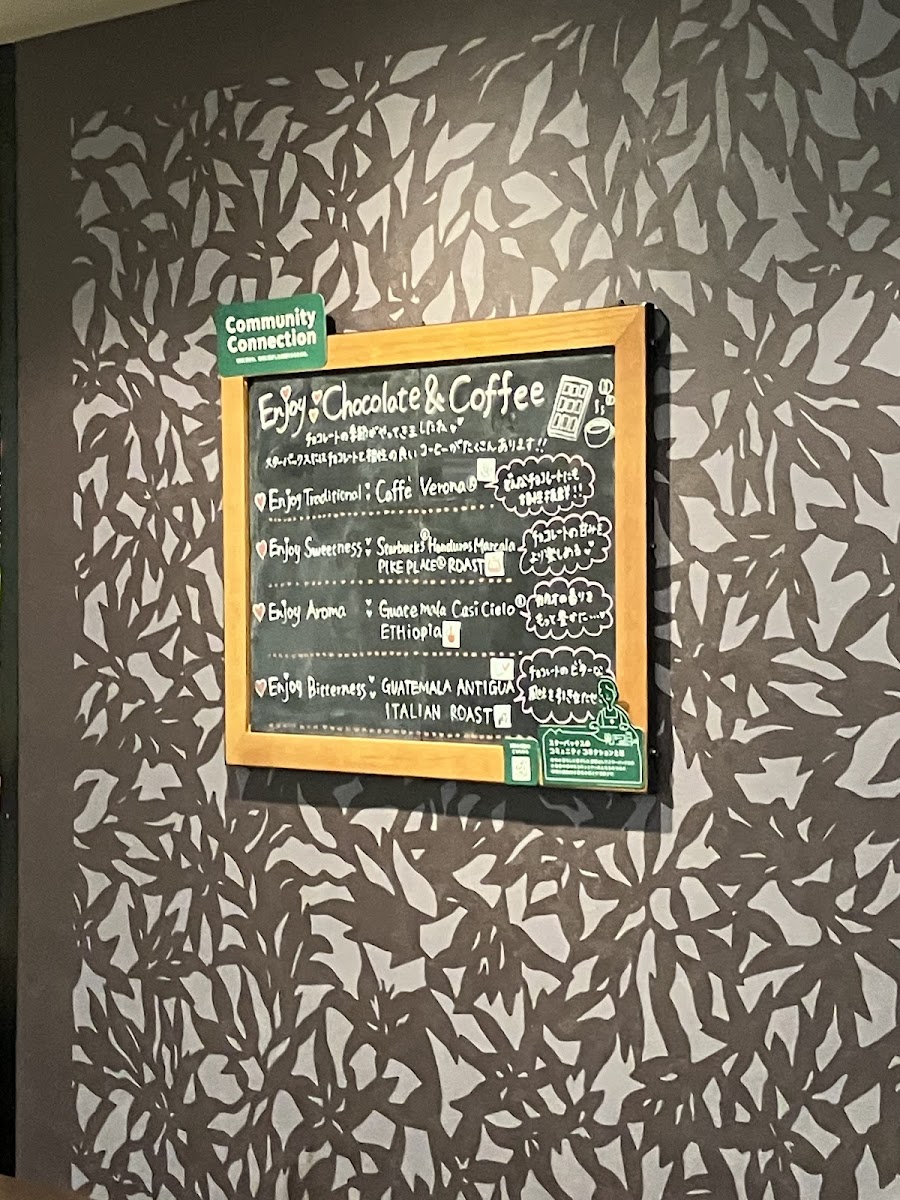 Community
Connection
Enjoy Chocolate & Coffee
チョコレートの季節がやってきましたね
スターバックスにはチョコレートと相性の良いコーヒーがたくさんあります!!
Enjoy Traditional: Caffè Verona®
どんなチョコレートにも
相性抜群!!
Enjoy Sweetness: Starbucks® Honduras Marcala
PIKE PLACE® ROAST
チョコレートの甘みを
より楽しめる
Enjoy Aroma : Guatemala Casi Cielo®
ETHiopia
カカオの香りを
もって豊かに...
Enjoy Bitterness: GUATEMALA ANTIGUA
ITALIAN ROAST
チョコレートのビターな
スターバックスの
コミュニティ コネクションとは